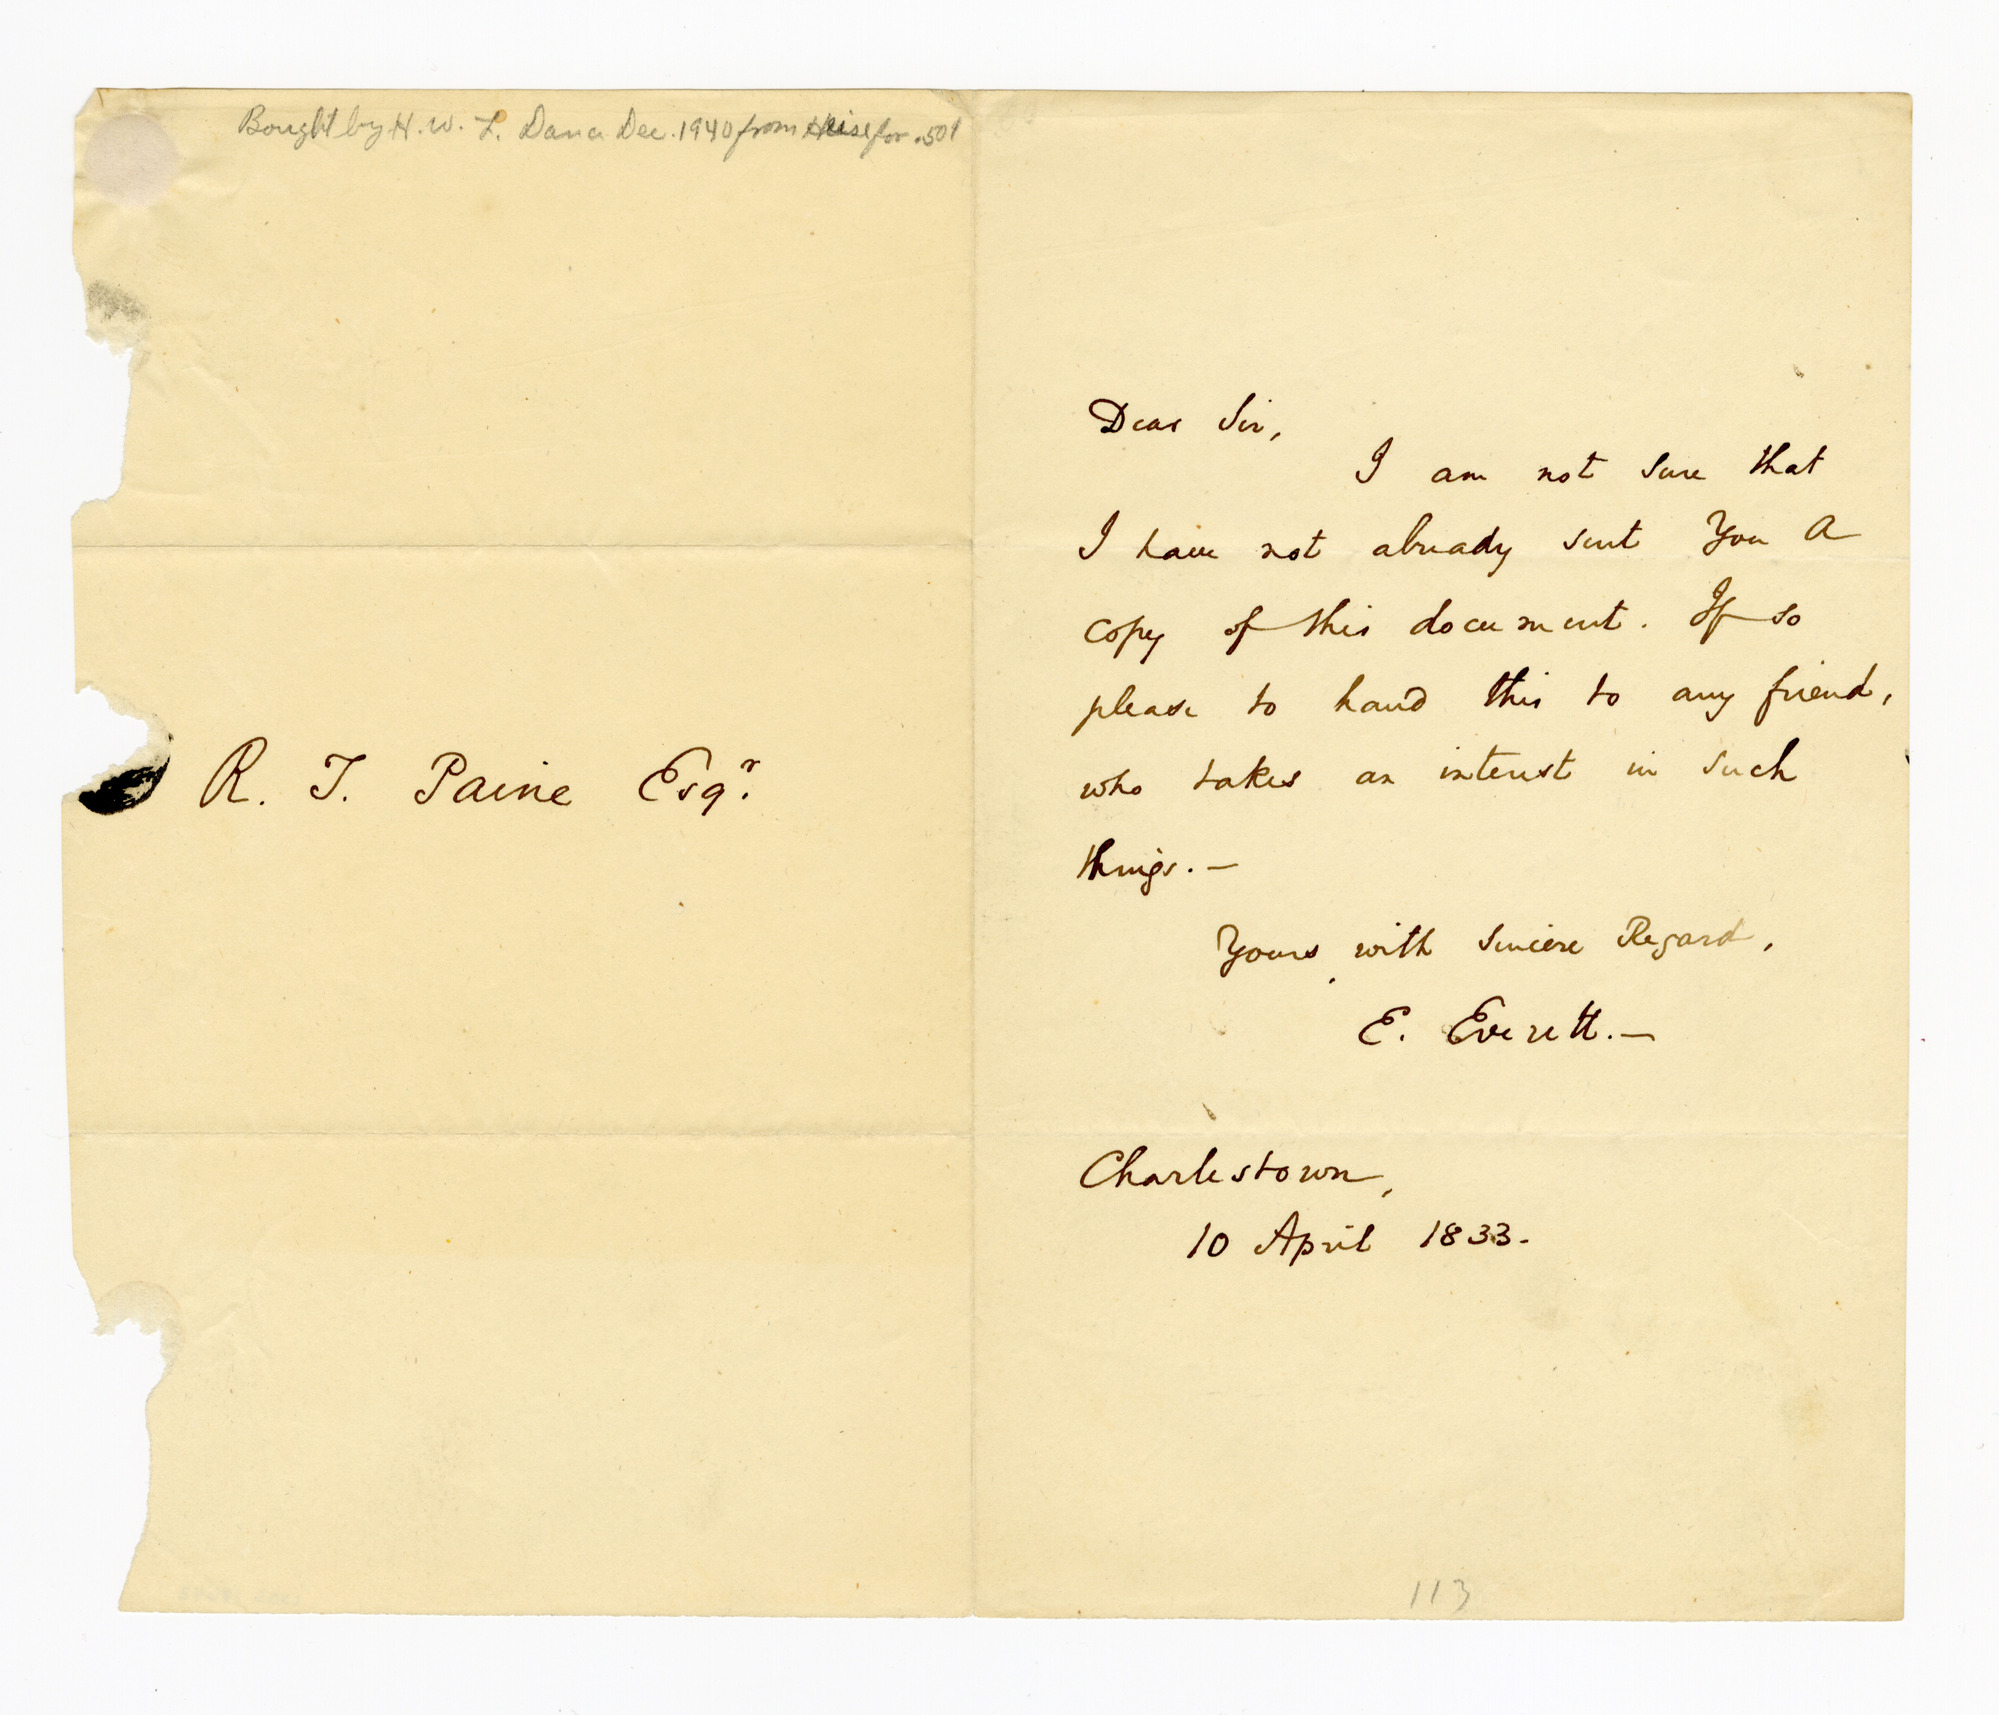 Bought by H. W. L. Dana Dec. 1940 from Heise for .50¢
R. T. Paine Esqr.
Dear Sir,
I am not sure that
I have not already sent You a
copy of this document. If so
please to hand this to any friend,
who takes an interest in such
things. —
Yours with sincere Regard,
E. Everett. —
Charlestown,
10 April 1833.
113